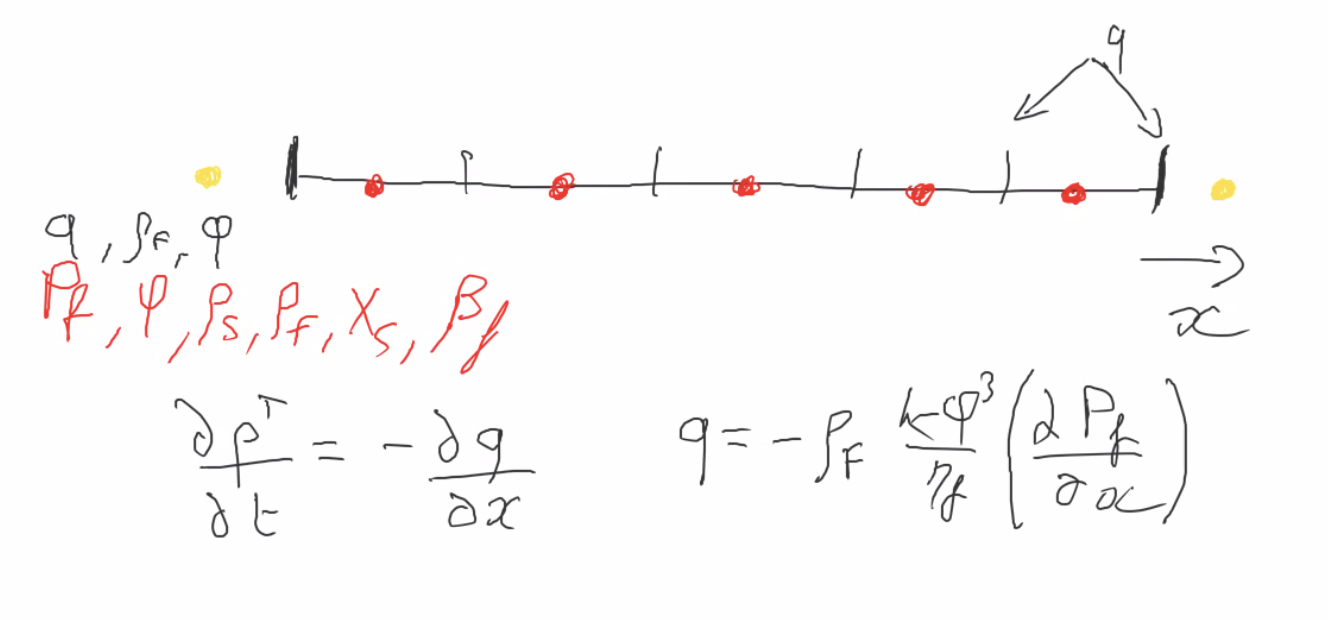 q
q, ρF, φ
x
Pf, φ, ρs, ρf, Xs, βf
∂ρᵀ/∂t = - ∂q/∂x    q = - ρF kφ³/ηf (∂Pf/∂x)